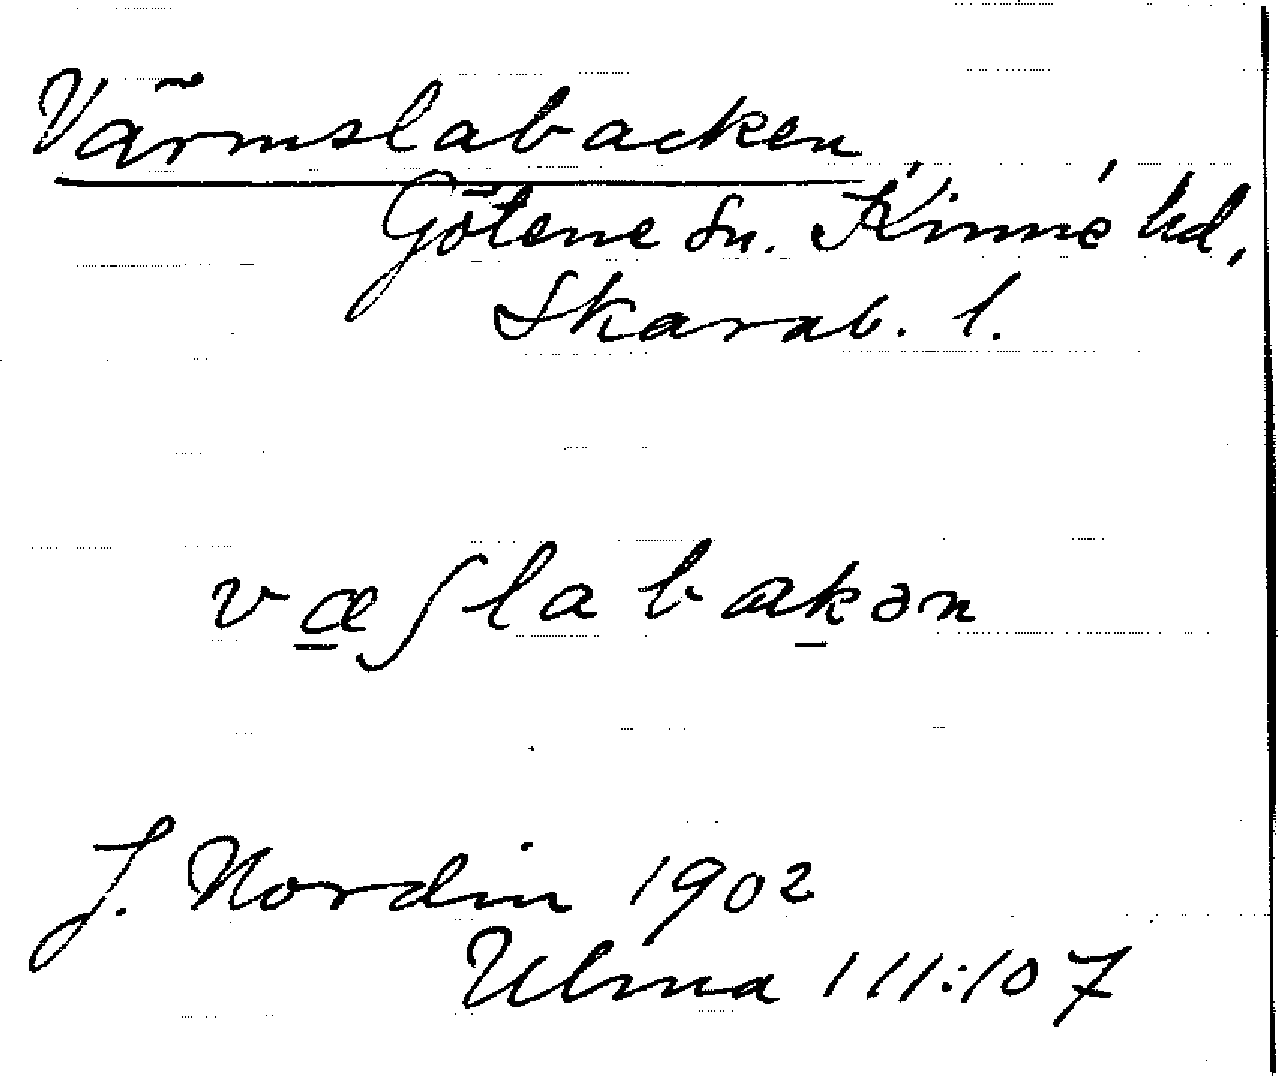 Värmslabacken
Götene sn. Kinne hd,
Skarab. l.
væʃlabakən
J. Nordin 1902
Ulma 111:107